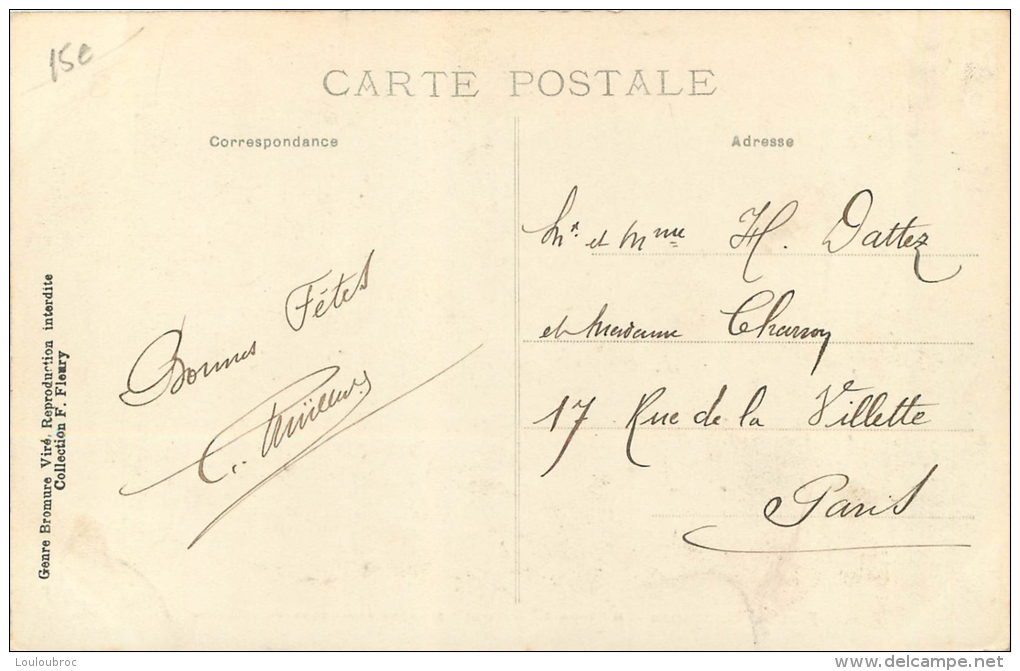 15e
CARTE POSTALE
Correspondance
Adresse
Bonnes Fêtes
Mr. et Mme H. Dattez
et Madame
17 Rue de la Villette
Paris
Genre Bromure Viré, Reproduction interdite
Collection F. Fleury
Louloubroc
www.delcampe.net